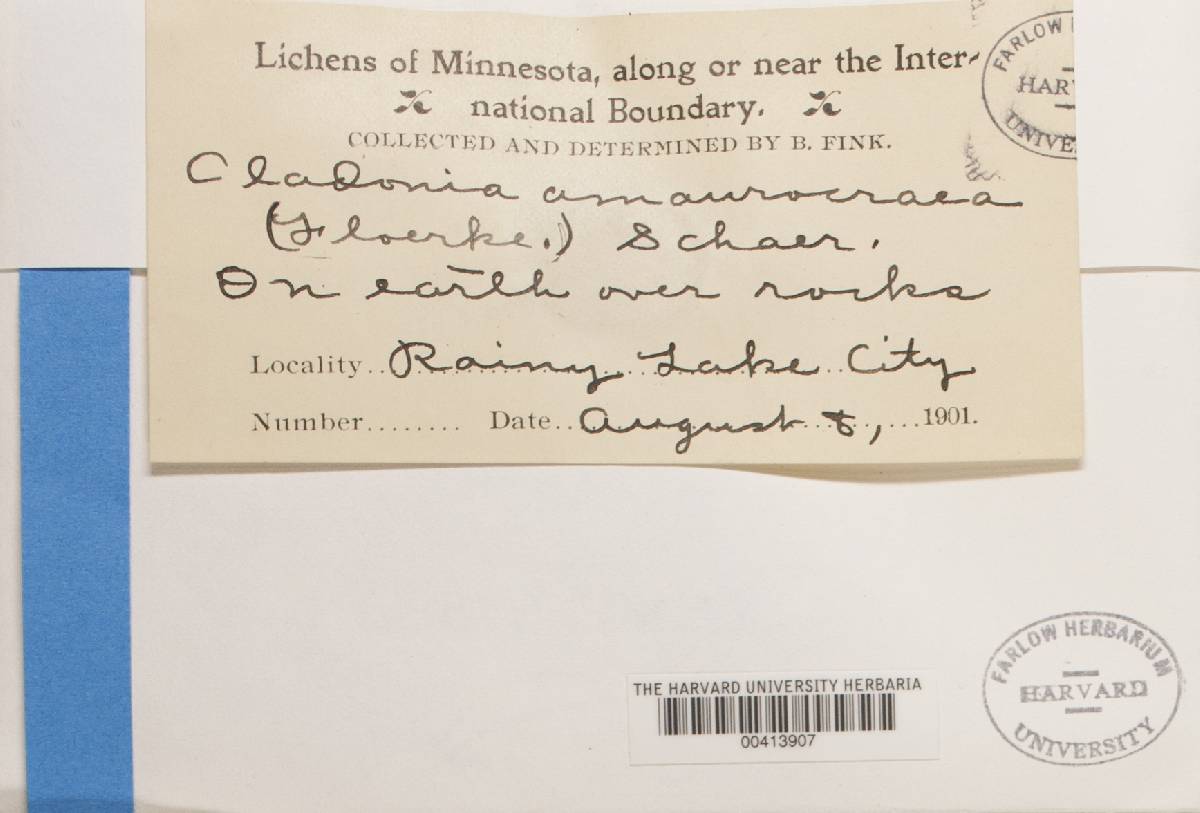 Lichens of Minnesota, along or near the Inter-
national Boundary.
COLLECTED AND DETERMINED BY B. FINK.
Cladonia amaurocraea
(Floerke.) Schaer.
On earth over rocks
Locality.. Rainy Lake City
Number........ Date.. August 8, ...1901.
FARLOW
HAR
UNIVE
THE HARVARD UNIVERSITY HERBARIA
00413907
FARLOW HERBARIUM
HARVARD
UNIVERSITY